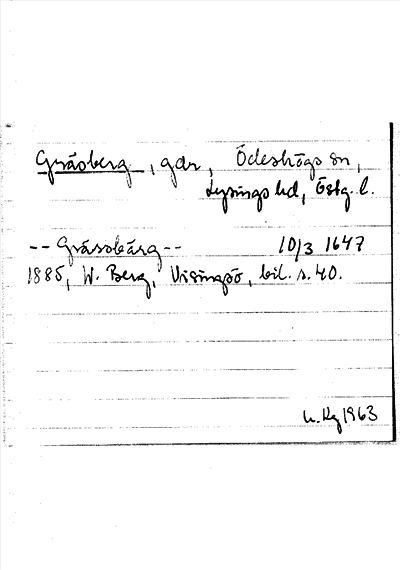 Gräsberg, gdr, Ödeshögs sn,
Lysings hd, Östg. l.
-- Gräsobärg -- 10/3 1647
1885, W. Berg, Visingsö, bil. s. 40.
1963